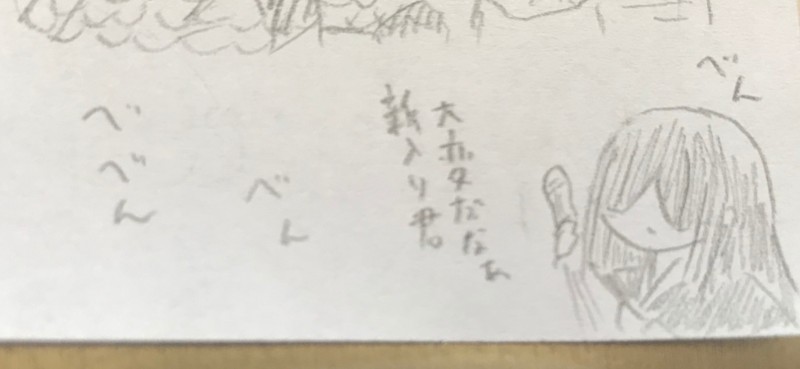 べん
大ホタだなぁ
新入り君。
べん
べべん